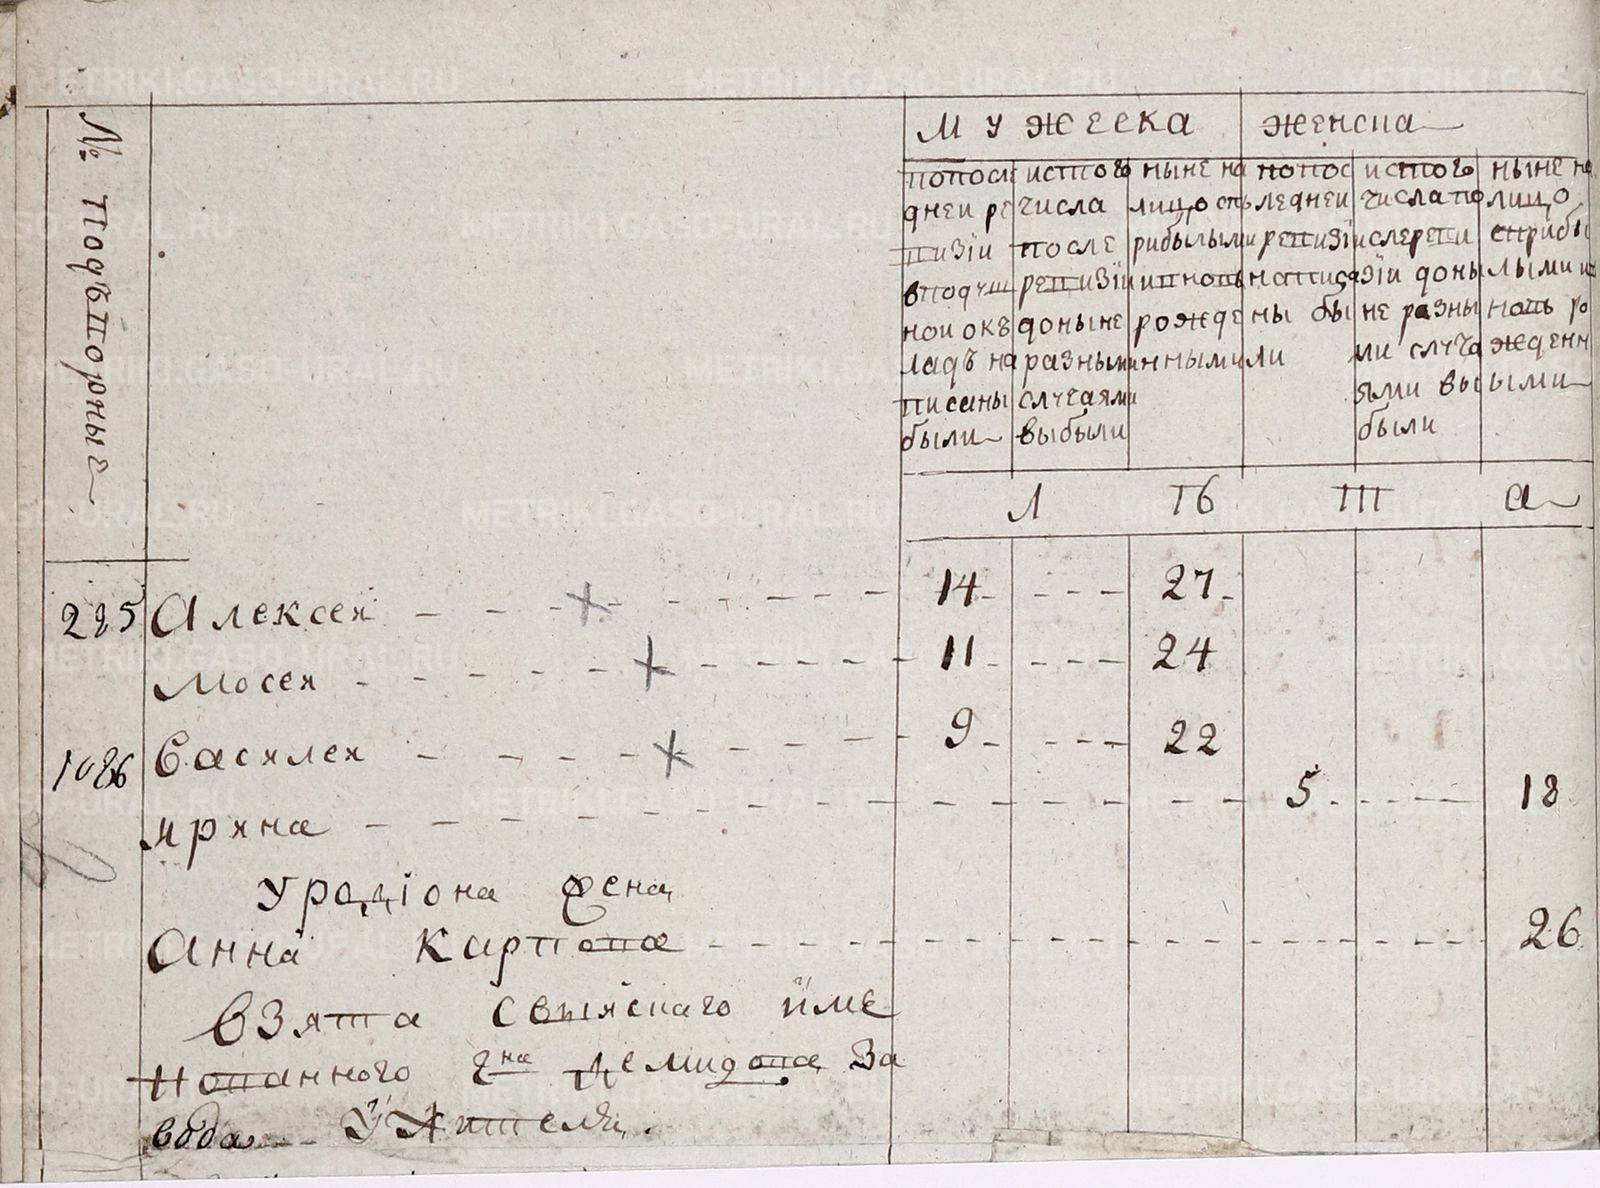 METRIKI.GASO-URAL.RU
№ подвторные
Мужеска
Женска
попосле дней ревизіи вподушной окъладъ написаны были
истого числа после ревизіи доныне разными случеаями выбыли
ныне налицо спърибылыми ивновь рожденными
попоследней ревизіи написаны были
истого числа послеревизіи доныне разными случаями выбыли
ныне налицо сприбылыми ивновь рожденными
Л т ъ т а
285 Алексеи 14 27
Мосеи 11 24
1086 Василеи 9 22
ирина 5 18
У радиіона жена
Анна Карпова 26
взята
имე
нованного гна Демидова за
вода У жителя.